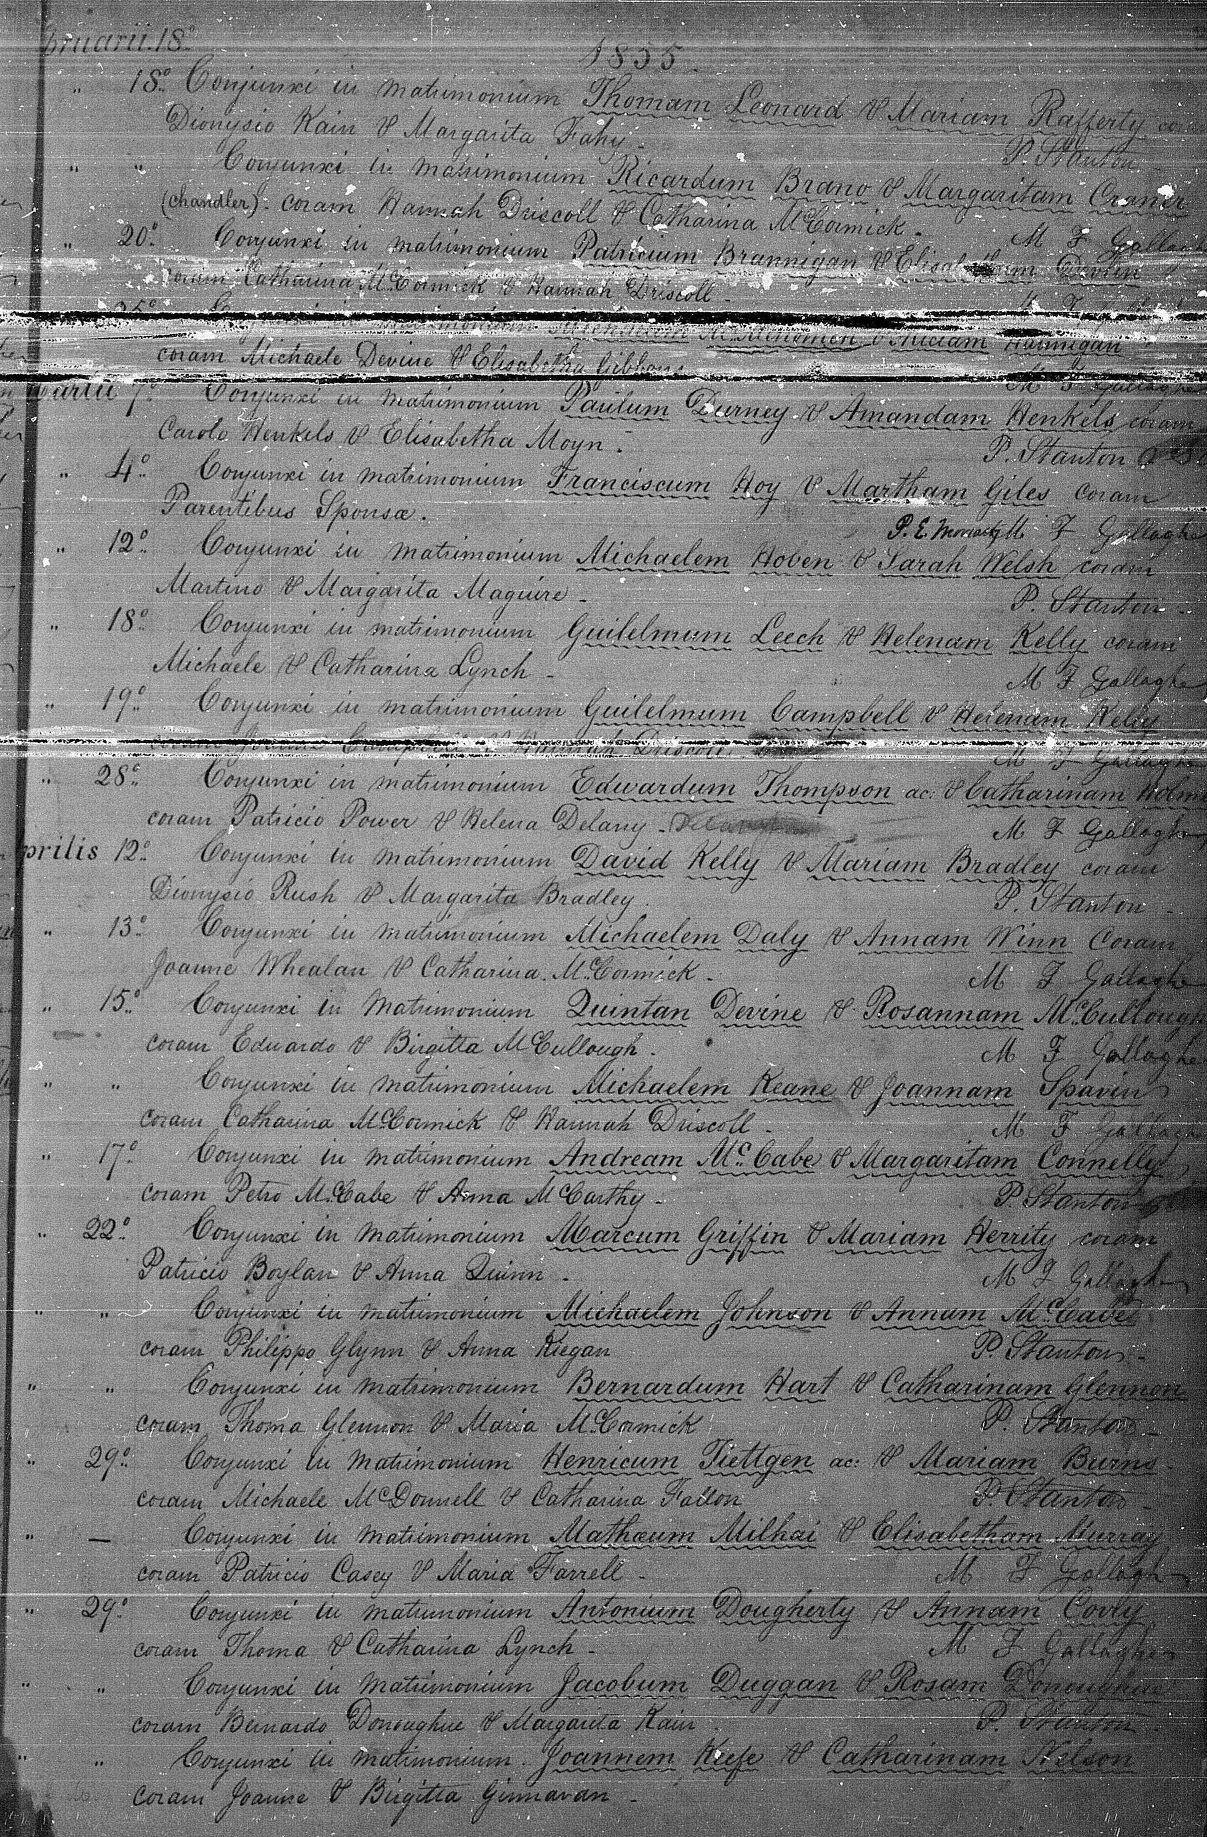 bruarii. 18º
1855.
" 18º Conjunxi in matrimonium Thomam Leonard & Mariam Rafferty
Dionysio Kain & Margarita Fahy. P. Stanton
" " Conjunxi in matrimonium Ricardum Brano & Margaritam Craner
(chandler) coram Hannah Driscoll & Catharina McCormick. M F Gallagh
" 20º Conjunxi in matrimonium Patricium Brannigan & Elisabetham Devlin
coram Catharina McCormick & Hannah Driscoll -
25º
coram Michaele Devine & Elisabetha Gibbons M F Gallaghe
artii Conjunxi in matrimonium Paulum Durney & Amandam Henkels coram
Carolo Henkels & Elisabetha Moyn. P. Stanton
" 4º Conjunxi in matrimonium Franciscum Hoy & Martham Giles coram
Parentibus Sponsæ. P. E. Moriarty M F Gallaghe
" 12º Conjunxi in matrimonium Michaelem Hoben & Sarah Welsh coram
Martino & Margarita Maguire - P. Stanton -
" 18º Conjunxi in matrimonium Guilelmum Leech & Helenam Kelly coram
Michaele & Catharina Lynch - M F Gallaghe
" 19º Conjunxi in matrimonium Guilelmum Campbell & Helenam Kelly
M F Gallaghe
" 28º Conjunxi in matrimonium Edwardum Thompson ac: & Catharinam Holm
coram Patricio Power & Helena Delany - M F Gallaghe
prilis 12º Conjunxi in matrimonium David Kelly & Mariam Bradley coram
Dionysio Rush & Margarita Bradley. P. Stanton -
" 13º Conjunxi in matrimonium Michaelem Daly & Annam Winn Coram
Joanne Whealan & Catharina McCormick - M F Gallaghe
" 15º Conjunxi in Matrimonium Quintan Devine & Rosannam McCullough
coram Eduardo & Birgitta McCullough. M F Gallaghe
" " Conjunxi in matrimonium Michaelem Keane & Joannam Spavin
coram Catharina McCormick & Hannah Driscoll - M F Gallagh
" 17º Conjunxi in matrimonium Andream McCabe & Margaritam Connelly
coram Petro McCabe & Anna McCarthy - P. Stanton
" 22º Conjunxi in matrimonium Marcum Griffin & Mariam Herrity coram
Patricio Boylan & Anna Quinn - M F Gallaghe
" " Conjunxi in matrimonium Michaelem Johnson & Annam McCabe
coram Philippo Glynn & Anna Kiegan P. Stanton -
" " Conjunxi in matrimonium Bernardum Hart & Catharinam Glennon
coram Thoma Glennon & Maria McCormick P. Stanton -
" 29º Conjunxi in matrimonium Henricum Tiettgen ac: & Mariam Burns -
coram Michaele McDonnell & Catharina Fallon P. Stanton -
" — Conjunxi in matrimonium Mathæum Milhai & Elisabetham Murray
coram Patricio Casey & Maria Farrell - M F Gallagh
" 29º Conjunxi in matrimonium Antonium Dougherty & Annam Covry
coram Thoma & Catharina Lynch - M F Gallaghe
" " Conjunxi in matrimonium Jacobum Duggan & Rosam Donoughue
coram Bernardo Donoughue & Margarita Kain. P. Stanton -
" " Conjunxi in matrimonium Joannem Keefe & Catharinam Nelson
coram Joanne & Birgitta Ginnavan -